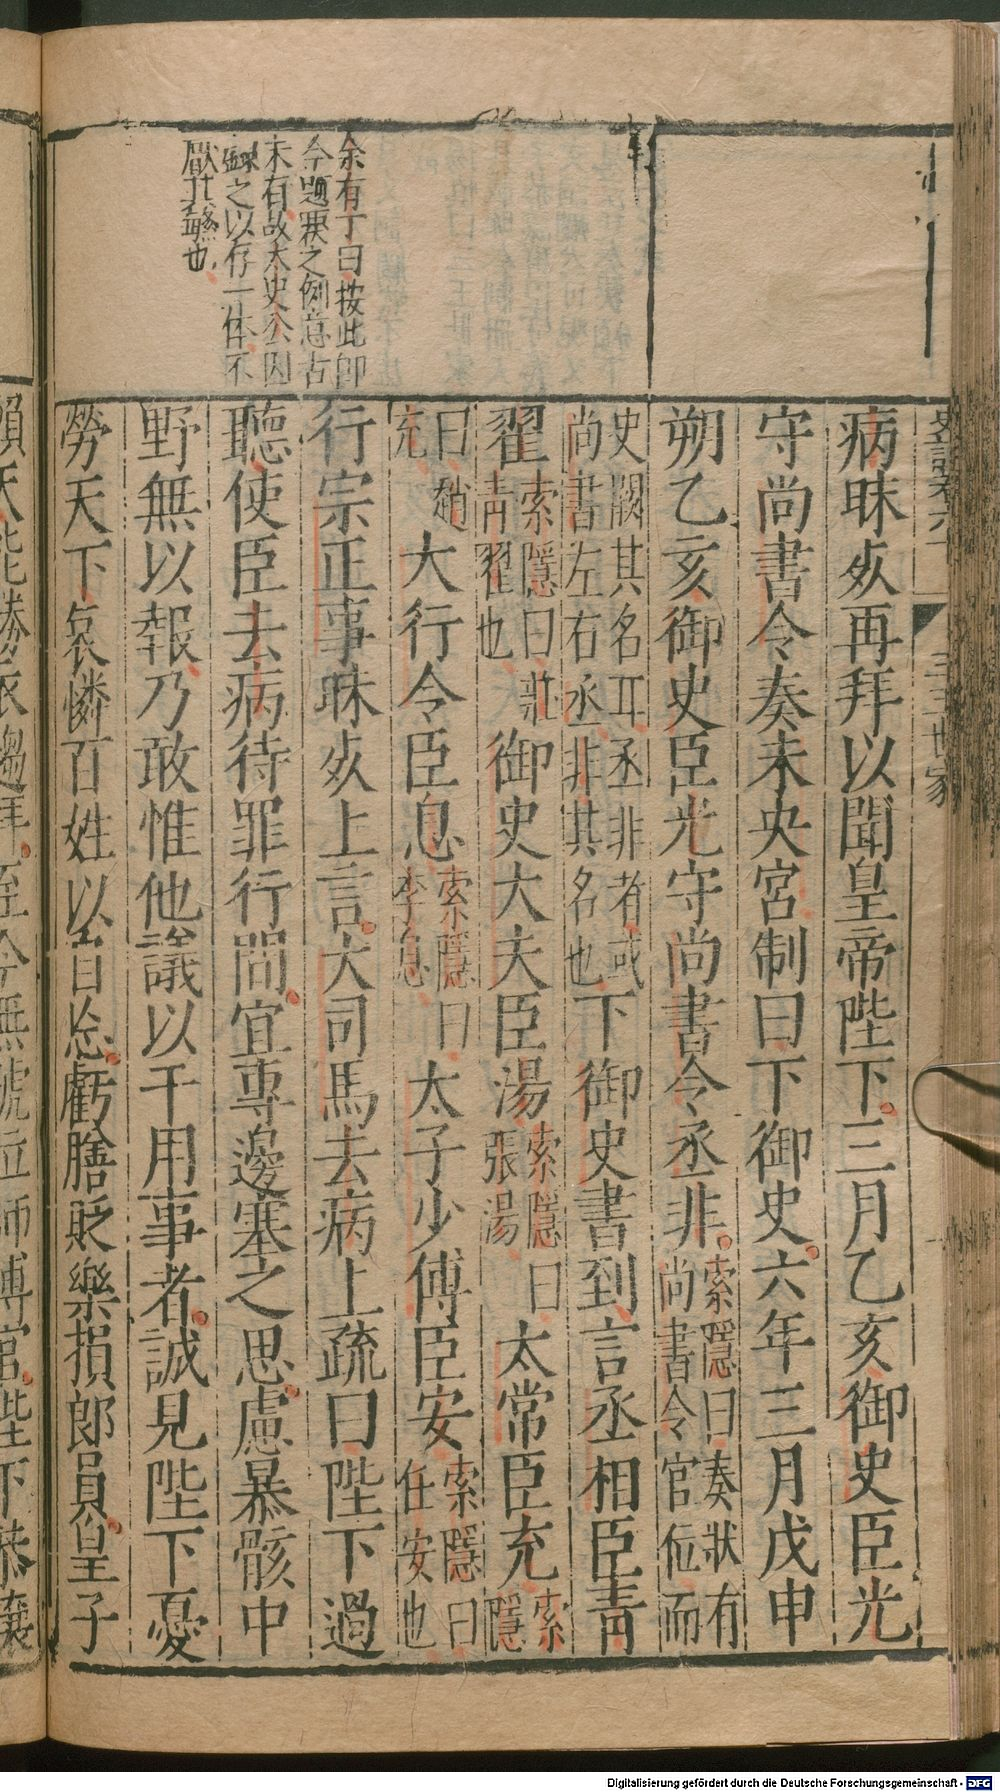 史記卷六十
三王世家
余有丁曰按此即
今題覆之例意古
未有故太史公因
錄之以存一体不
厭其煩也
病昧死再拜以聞皇帝陛下三月乙亥御史臣光
守尚書令奏未央宮制曰下御史六年三月戊申
朔乙亥御史臣光守尚書令丞非索隱曰奏狀有尚書令官位而
史闕其名耳丞非者或尚書左右丞非其名也下御史書到言丞相臣青
翟索隱曰莊青翟也御史大夫臣湯索隱曰張湯太常臣充索隱
曰趙充大行令臣息索隱曰李息太子少傅臣安索隱曰任安也
行宗正事昧死上言大司馬去病上疏曰陛下過
聽使臣去病待罪行間宜專邊塞之思慮暴骸中
野無以報乃敢惟他議以干用事者誠見陛下憂
勞天下哀憐百姓以自忘虧膳貶樂損郎員皇子
賴天能勝衣趨拜至今無號位師傅官陛下恭讓
Digitalisierung gefördert durch die Deutsche Forschungsgemeinschaft - DFG